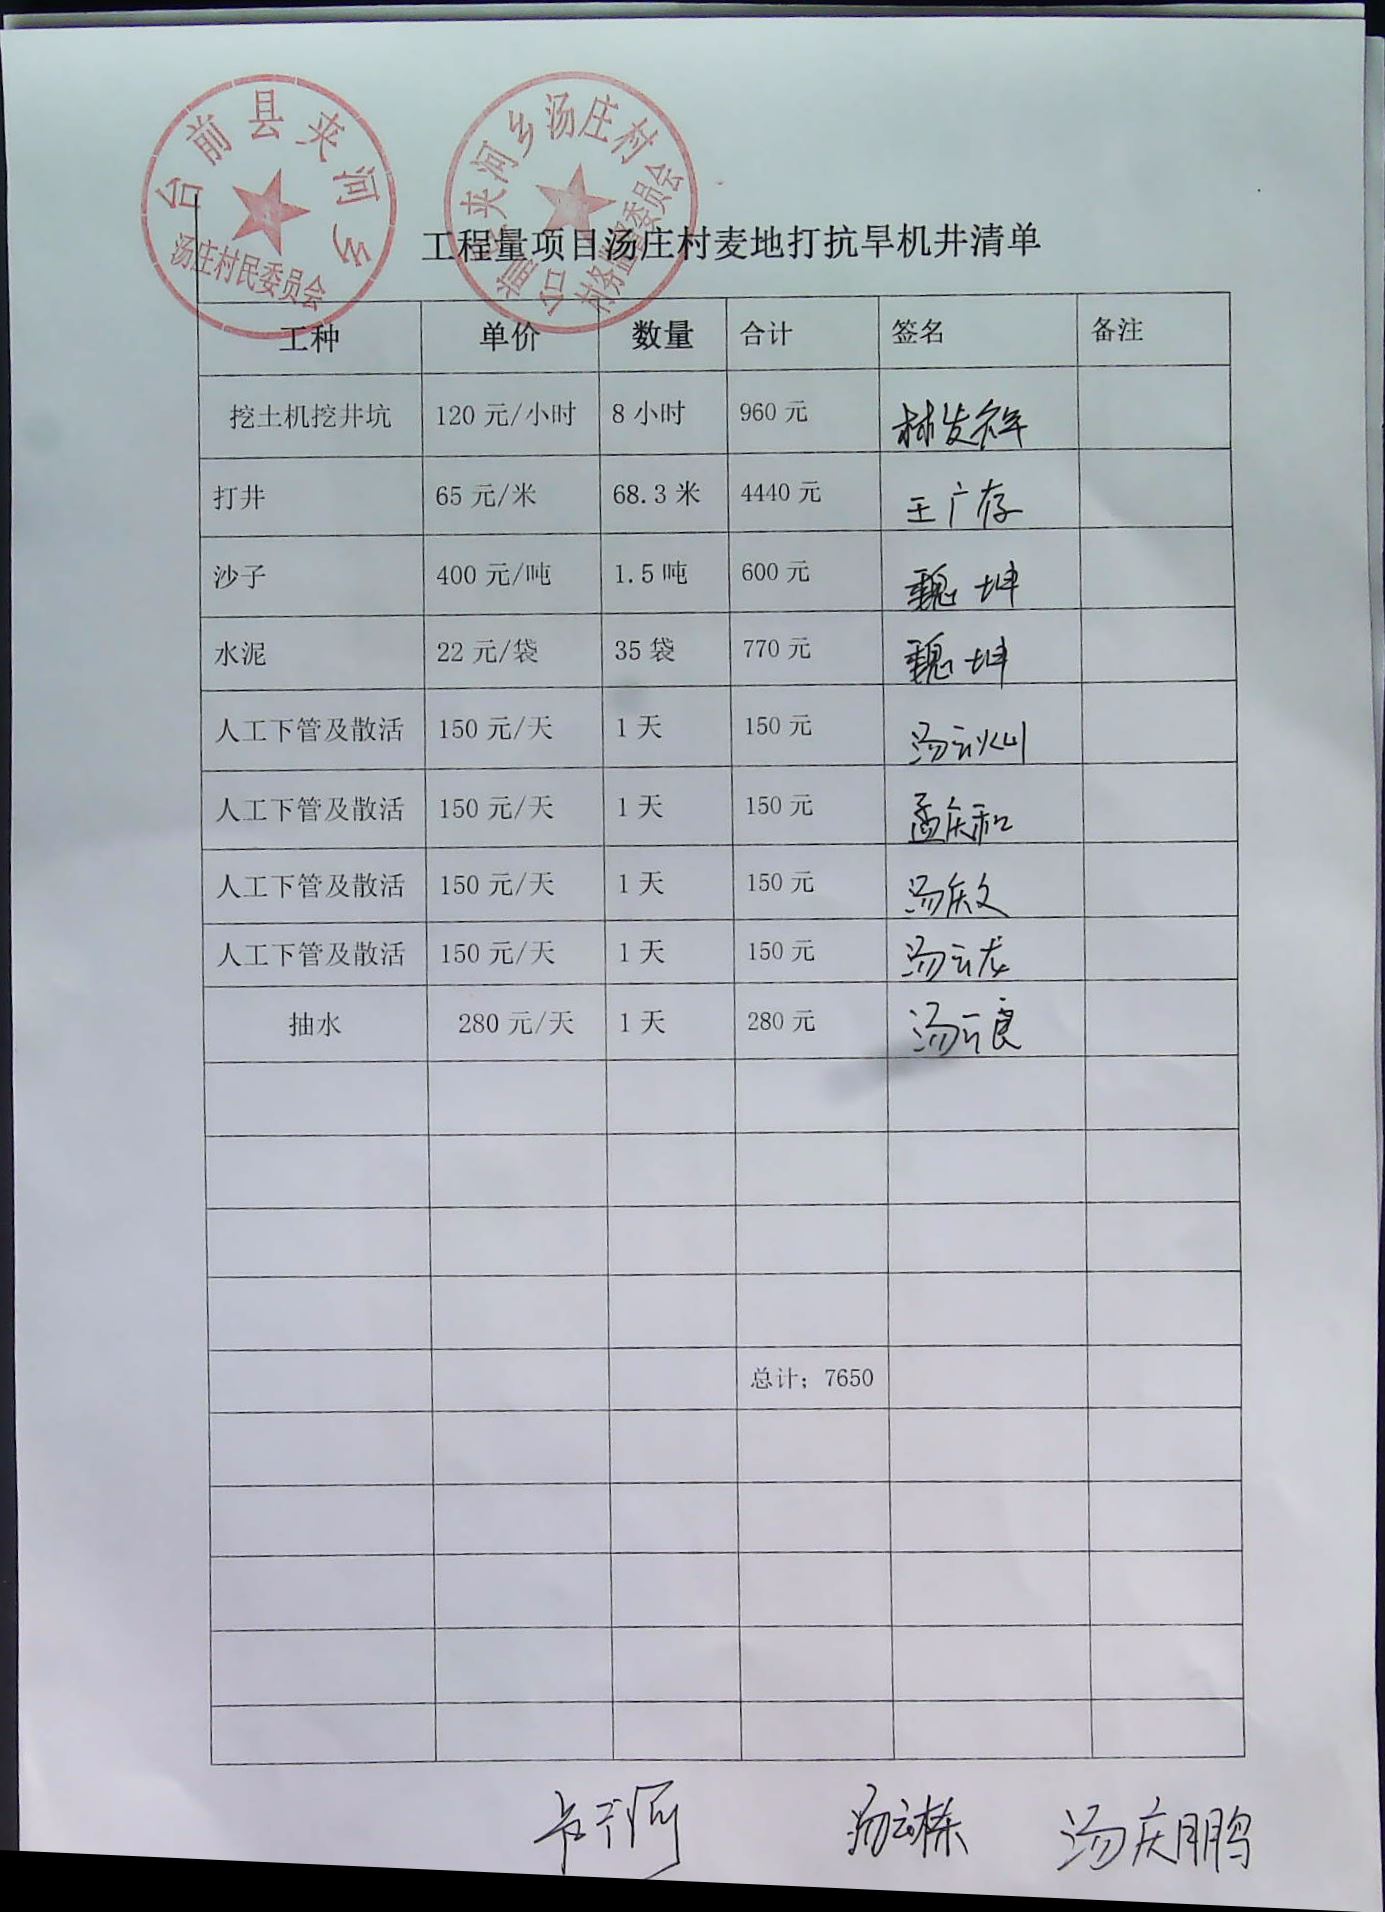 台前县夹河乡
汤庄村民委员会
台前县夹河乡汤庄村
村务监督委员会
工程量项目汤庄村麦地打抗旱机井清单
工种 单价 数量 合计 签名 备注
挖土机挖井坑 120 元/小时 8 小时 960 元 林发祥
打井 65 元/米 68.3 米 4440 元 王广存
沙子 400 元/吨 1.5 吨 600 元 魏坤
水泥 22 元/袋 35 袋 770 元 魏坤
人工下管及散活 150 元/天 1 天 150 元
人工下管及散活 150 元/天 1 天 150 元 孟庆和
人工下管及散活 150 元/天 1 天 150 元 汤庆文
人工下管及散活 150 元/天 1 天 150 元 汤云龙
抽水 280 元/天 1 天 280 元 汤云良
总计；7650
汤云栋 汤庆鹏